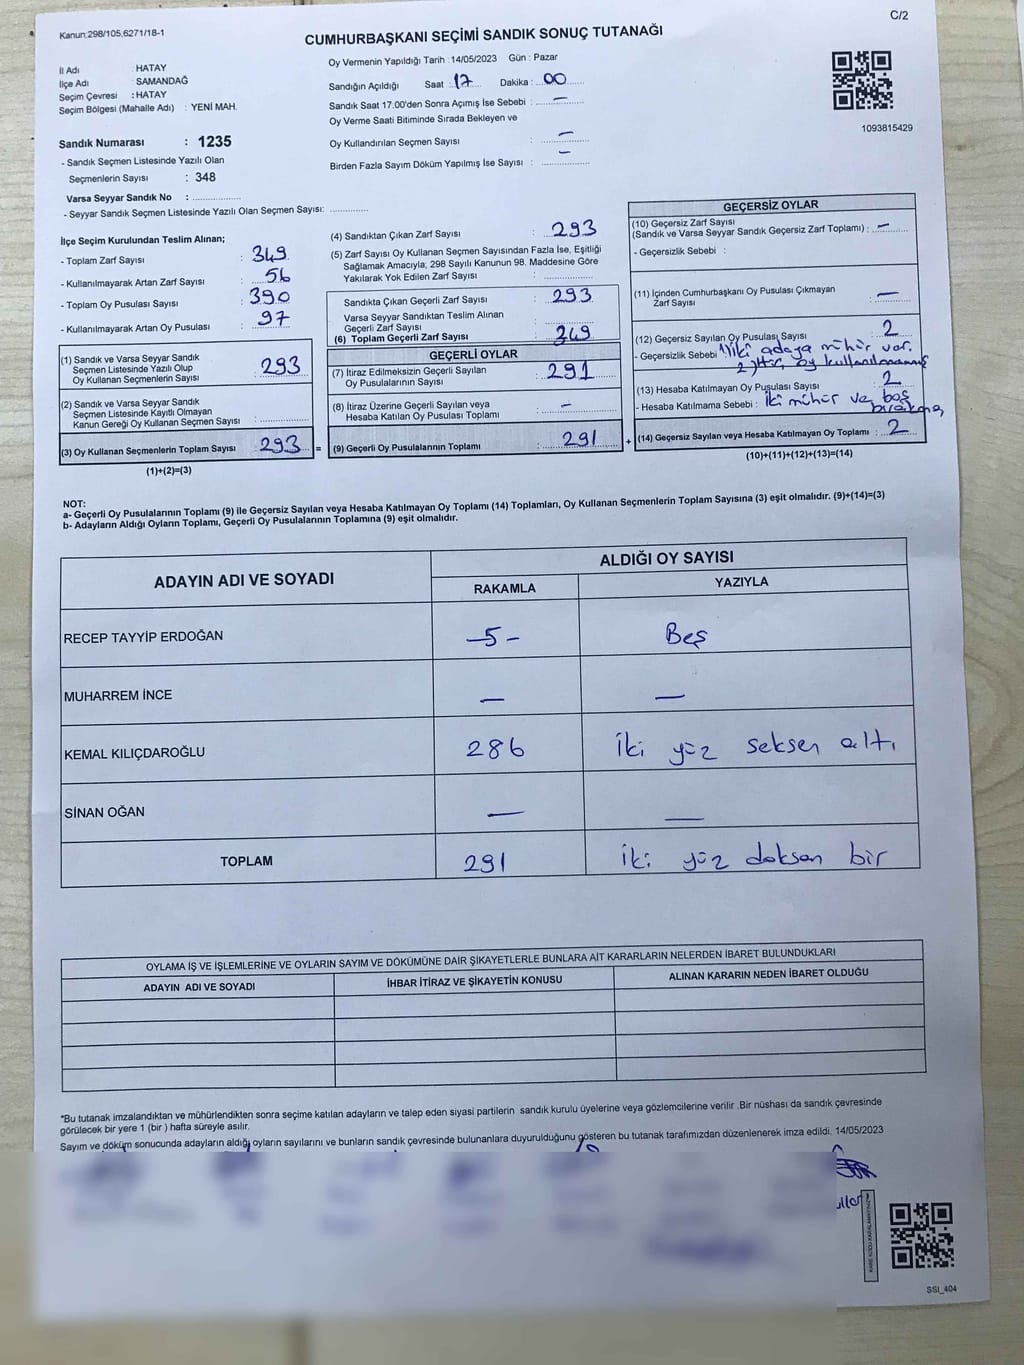 Kanun;298/105,6271/18-1
C/2
CUMHURBAŞKANI SEÇİMİ SANDIK SONUÇ TUTANAĞI
İl Adı : HATAY
İlçe Adı : SAMANDAĞ
Seçim Çevresi : HATAY
Seçim Bölgesi (Mahalle Adı) : YENİ MAH.
Oy Vermenin Yapıldığı Tarih : 14/05/2023 Gün : Pazar
Sandığın Açıldığı Saat : 17 Dakika : 00
Sandık Saat 17.00'den Sonra Açımış İse Sebebi : —
Oy Verme Saati Bitiminde Sırada Bekleyen ve
Oy Kullandırılan Seçmen Sayısı : —
Birden Fazla Sayım Döküm Yapılmış İse Sayısı : —
1093815429
Sandık Numarası : 1235
- Sandık Seçmen Listesinde Yazılı Olan
Seçmenlerin Sayısı : 348
Varsa Seyyar Sandık No :
- Seyyar Sandık Seçmen Listesinde Yazılı Olan Seçmen Sayısı:
İlçe Seçim Kurulundan Teslim Alınan;
- Toplam Zarf Sayısı : 349
- Kullanılmayarak Artan Zarf Sayısı : 56
- Toplam Oy Pusulası Sayısı : 390
- Kullanılmayarak Artan Oy Pusulası : 97
(1) Sandık ve Varsa Seyyar Sandık
Seçmen Listesinde Yazılı Olup
Oy Kullanan Seçmenlerin Sayısı : 293
(2) Sandık ve Varsa Seyyar Sandık
Seçmen Listesinde Kayıtlı Olmayan
Kanun Gereği Oy Kullanan Seçmen Sayısı :
(3) Oy Kullanan Seçmenlerin Toplam Sayısı : 293 =
(1)+(2)=(3)
(4) Sandıktan Çıkan Zarf Sayısı : 293
(5) Zarf Sayısı Oy Kullanan Seçmen Sayısından Fazla İse, Eşitliği
Sağlamak Amacıyla, 298 Sayılı Kanunun 98. Maddesine Göre
Yakılarak Yok Edilen Zarf Sayısı :
Sandıkta Çıkan Geçerli Zarf Sayısı : 293
Varsa Seyyar Sandıktan Teslim Alınan
Geçerli Zarf Sayısı :
(6) Toplam Geçerli Zarf Sayısı : 349
GEÇERLİ OYLAR
(7) İtiraz Edilmeksizin Geçerli Sayılan
Oy Pusulalarının Sayısı : 291
(8) İtiraz Üzerine Geçerli Sayılan veya
Hesaba Katılan Oy Pusulası Toplamı : —
(9) Geçerli Oy Pusulalarının Toplamı : 291 +
GEÇERSİZ OYLAR
(10) Geçersiz Zarf Sayısı
(Sandık ve Varsa Seyyar Sandık Geçersiz Zarf Toplamı) : —
- Geçersizlik Sebebi :
(11) İçinden Cumhurbaşkanı Oy Pusulası Çıkmayan
Zarf Sayısı : —
(12) Geçersiz Sayılan Oy Pusulası Sayısı : 2
- Geçersizlik Sebebi : 1) iki adaya mühür var.
2) Hiç oy kullanılmamış
(13) Hesaba Katılmayan Oy Pusulası Sayısı : 2
- Hesaba Katılmama Sebebi : İki mühür ve boş
bırakma,
(14) Geçersiz Sayılan veya Hesaba Katılmayan Oy Toplamı : 2
(10)+(11)+(12)+(13)=(14)
NOT:
a- Geçerli Oy Pusulalarının Toplamı (9) ile Geçersiz Sayılan veya Hesaba Katılmayan Oy Toplamı (14) Toplamları, Oy Kullanan Seçmenlerin Toplam Sayısına (3) eşit olmalıdır. (9)+(14)=(3)
b- Adayların Aldığı Oyların Toplamı, Geçerli Oy Pusulalarının Toplamına (9) eşit olmalıdır.
ADAYIN ADI VE SOYADI
ALDIĞI OY SAYISI
RAKAMLA YAZIYLA
RECEP TAYYİP ERDOĞAN —5— Beş
MUHARREM İNCE — —
KEMAL KILIÇDAROĞLU 286 İki yüz seksen altı
SİNAN OĞAN — —
TOPLAM 291 İki yüz doksan bir
OYLAMA İŞ VE İŞLEMLERİNE VE OYLARIN SAYIM VE DÖKÜMÜNE DAİR ŞİKAYETLERLE BUNLARA AİT KARARLARIN NELERDEN İBARET BULUNDUKLARI
ADAYIN ADI VE SOYADI İHBAR İTİRAZ VE ŞİKAYETİN KONUSU ALINAN KARARIN NEDEN İBARET OLDUĞU
*Bu tutanak imzalandıktan ve mühürlendikten sonra seçime katılan adayların ve talep eden siyasi partilerin sandık kurulu üyelerine veya gözlemcilerine verilir .Bir nüshası da sandık çevresinde
görülecek bir yere 1 (bir ) hafta süreyle asılır.
Sayım ve döküm sonucunda adayların aldığı oyların sayılarını ve bunların sandık çevresinde bulunanlara duyurulduğunu gösteren bu tutanak tarafımızdan düzenlenerek imza edildi. 14/05/2023
SSI_404